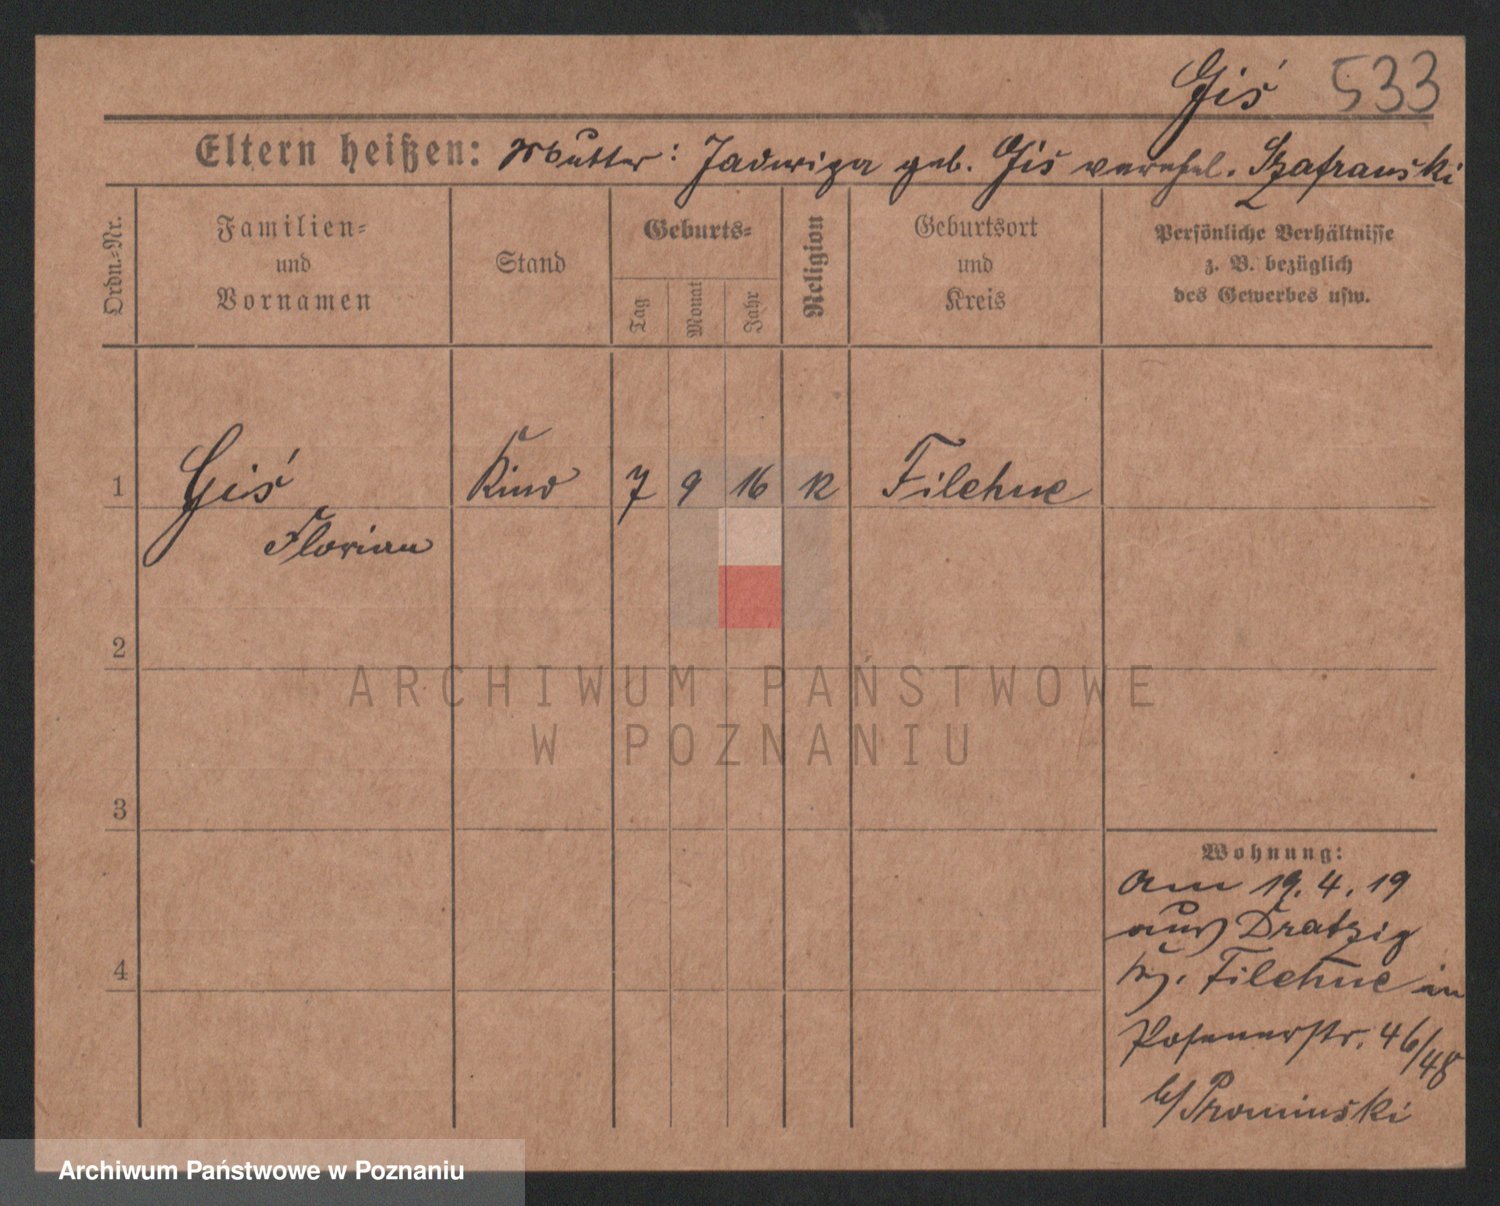 Giś 533
Eltern heißen: Mutter: Jadwiga geb. Gis verehel. Szafranski
Ordn.-Nr.
Familien-
und
Vornamen
Stand
Geburts-
Tag
Monat
Jahr
Religion
Geburtsort
und
Kreis
Persönliche Verhältnisse
z. B. bezüglich
des Gewerbes usw.
1 Giś Kind 7 9 16 K Filehne
Florian
2
ARCHIWUM PAŃSTWOWE
W POZNANIU
3
4
Wohnung:
Am 19.4.19
aus Dratzig
Filehne in
Posenerstr. 46/48
b/ Prominski
Archiwum Państwowe w Poznaniu